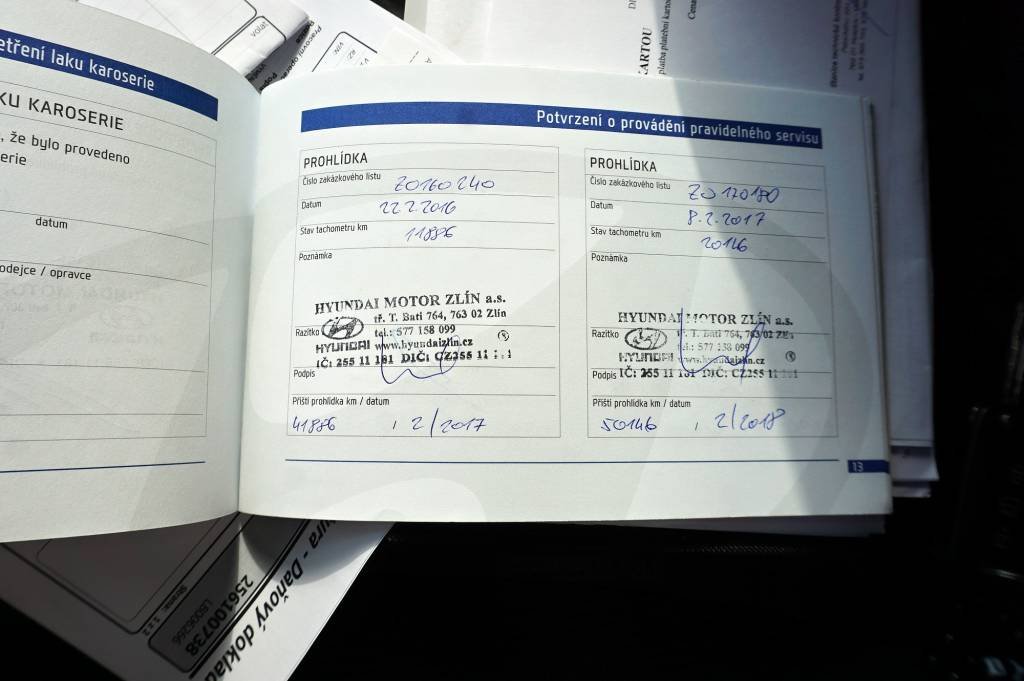 etření laku karoserie
KU KAROSERIE
, že bylo provedeno
erie
datum
odejce / opravce
volat
KARTOU
platba platební karto
Cena
Potvrzení o provádění pravidelného servisu
PROHLÍDKA
Číslo zakázkového listu Z0160240
Datum 22.2.2016
Stav tachometru km 11886
Poznámka
HYUNDAI MOTOR ZLÍN a.s.
tř. T. Bati 764, 763 02 Zlín
Razítko
tel.: 577 158 099
HYUNDAI www.hyundaizlin.cz
IČ: 255 11 181 DIČ: CZ255 11
Podpis
Příští prohlídka km / datum
41886 / 2/2017
PROHLÍDKA
Číslo zakázkového listu Z0170180
Datum 8.2.2017
Stav tachometru km 20146
Poznámka
HYUNDAI MOTOR ZLÍN a.s.
tř. T. Bati 764, 763 02
Razítko
tel.: 577 158 099
HYUNDAI www.hyundaizlin.cz
Podpis IČ: 255 11 181 DIČ: CZ255 11
Příští prohlídka km / datum
50146 / 2/2018
13
ura - Daňový doklad
2561000738
LS006266
Strana: 1 z 2